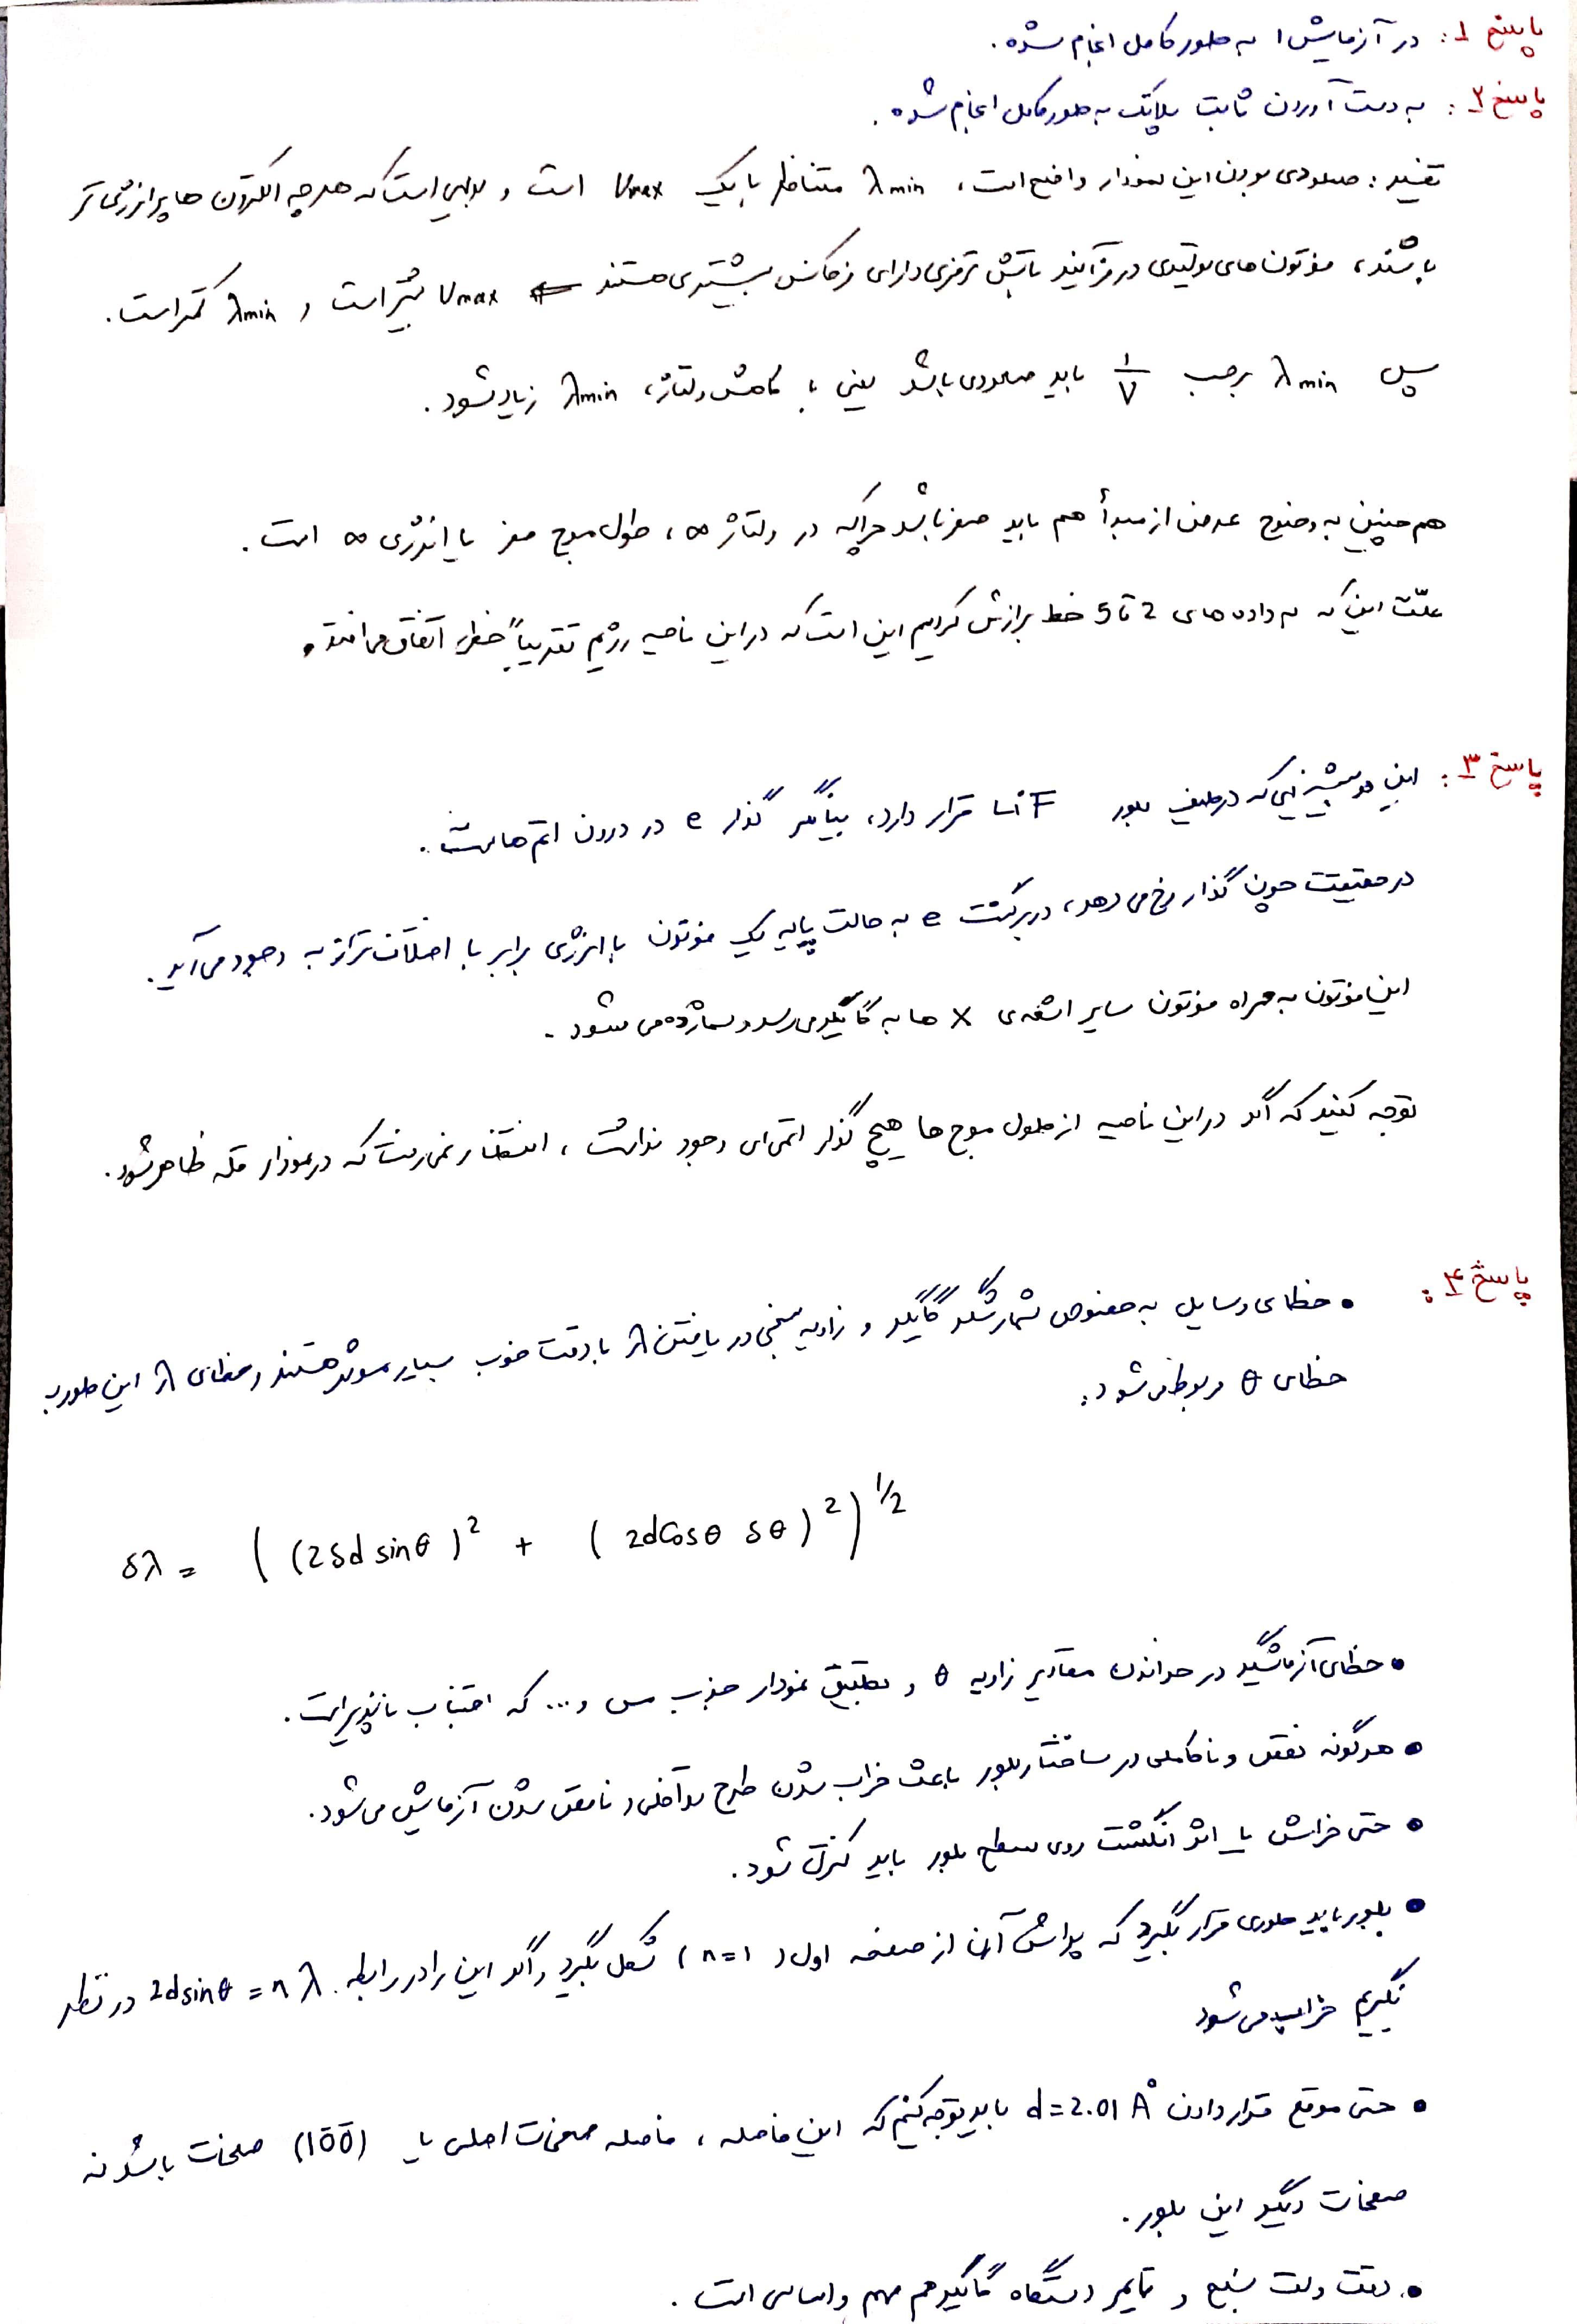 پاسخ ۱: در آزمایش ۱ به طور کامل انجام شده.
پاسخ ۲: به دست آوردن ثابت پلانک به طور کامل انجام شده.
تفسیر: صعودی بودن این نمودار واضح است، λmin متناظر با یک νmax است و بدیهی است که هرچه الکترون ها پر انرژی تر
باشند، فوتون های تولیدی در فرآیند تابش ترمزی دارای فرکانس بیشتری هستند ⇐ νmax بیشتر است و λmin کمتر است.
پس λmin برحسب ۱/V باید صعودی باشد یعنی با کاهش ولتاژ، λmin زیاد شود.
هم چنین به وضوح عرض از مبدأ هم باید صفر باشد چراکه در ولتاژ ∞، طول موج صفر یا انرژی ∞ است.
علّت این که به داده های 2 تا 5 خط برازش کردیم این است که در این ناحیه رژیم تقریباً خطی اتفاق می افتد.
پاسخ ۳: این دو بیشینه ایی که در طیف بلور LiF قرار دارد، بیانگر گذار e در درون اتم هاست.
در حقیقت چون گذار رخ می دهد، در برگشت e به حالت پایه یک فوتون با انرژی برابر با اختلاف تراز به وجود می آید.
این فوتون به همراه فوتون سایر اشعه ی X ها به گایگر می رسد و شمارده می شود.
توجه کنید که اگر در این ناحیه از طول موج ها هیچ گذار اتمی ای وجود نداشت، انتظار نمی رفت که در نمودار قله ظاهر شود.
پاسخ ۴:
• خطای وسایل به خصوص شمارشگر گایگر و زاویه سنجی در یافتن λ با دقت خوب بسیار موثر هستند و خطای λ این طور به
خطای θ مربوط می شود:
δλ = ((2δd sinθ)² + (2dCosθ δθ)²)^1/2
• خطای آزمایشگر در خواندن مقادیر زاویه θ و تطبیق نمودار جذب مس و... که اجتناب ناپذیر است.
• هرگونه نقص و ناکاملی در ساختار بلور باعث خراب شدن طرح تداخلی و ناقص شدن آزمایش می شود.
• حتی خراش یا اثر انگشت روی سطح بلور باید کنترل شود.
• بلور باید طوری قرار بگیرد که پراش آن از صفحه اول (n=1) شکل بگیرد و اگر این را در رابطه 2dsinθ = nλ در نظر
نگیریم خراب می شود
• حتی موقع قرار دادن d = 2.01 A° باید توجه کنیم که این فاصله، فاصله صفحات اصلی یا (100) صفحات باشد نه
صفحات دیگر این بلور.
• دقت ولت سنج و تایمر دستگاه گایگر هم مهم و اساسی است.